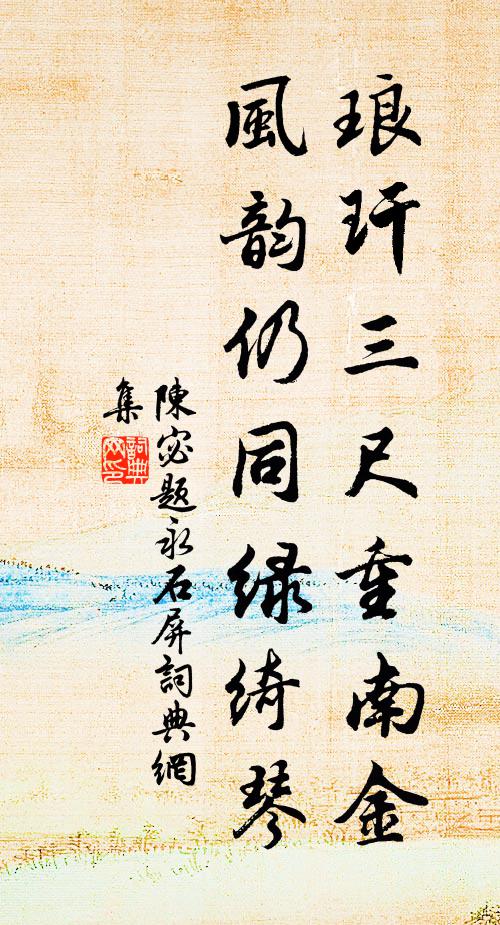 琅玕三尺重南金
風韵仍同緑綺琴
陳宓題永石屏詞典網
集
詞典
网印